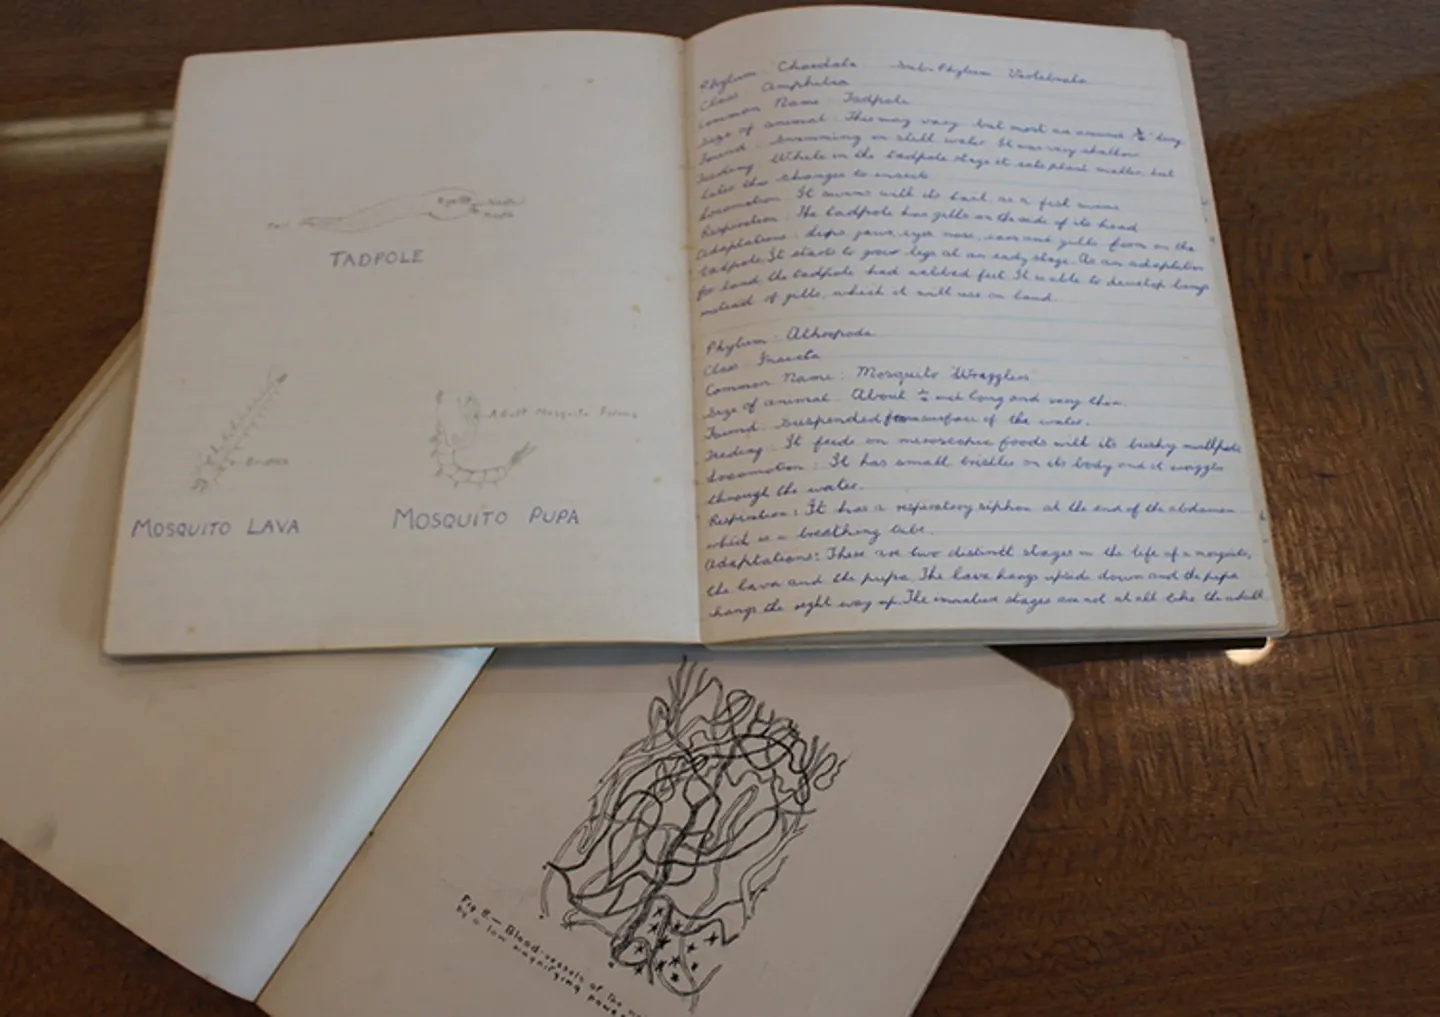 Eye
Nostril
Mouth
Tail
TADPOLE
Adult Mosquito Forms
Bristles
MOSQUITO LAVA
MOSQUITO PUPA
Phylum : Chordata Sub-Phylum Vertebrata
Class Amphibia
Common Name : Tadpole
Size of animal : This may vary but most are around ¾" long
Found : Swimming in still water. It was very shallow
Feeding While in the tadpole stage it eats plant matter, but
later this changes to insects
Locomotion It swims with its tail as a fish swims
Respiration : The tadpole has gills on the side of its head
Adaptations : Lips, jaws, eyes nose, ears and gills form on the
tadpole. It starts to grow legs at an early stage. As an adaptation
for land the tadpole had webbed feet. It is able to develop lungs
instead of gills, which it will use on land.
Phylum : Athropoda
Class Insecta
Common Name : Mosquito 'Wrigglers'
Size of animal : About ¼ inch long and very thin.
Found : Suspended from surface of the water.
Feeding : It feeds on microscopic foods with its brushy mouthparts
Locomotion : It has small bristles on its body and it wriggles
through the water.
Respiration : It has a respiratory siphon at the end of the abdomen
which is a breathing tube.
Adaptations : There are two distinct stages in the life of a mosquito,
the lava and the pupa. The lava hangs upside down and the pupa
hangs the right way up. The immature stages are not at all like the adult
Fig 8.— Blood-vessels of the
by a low magnifying power